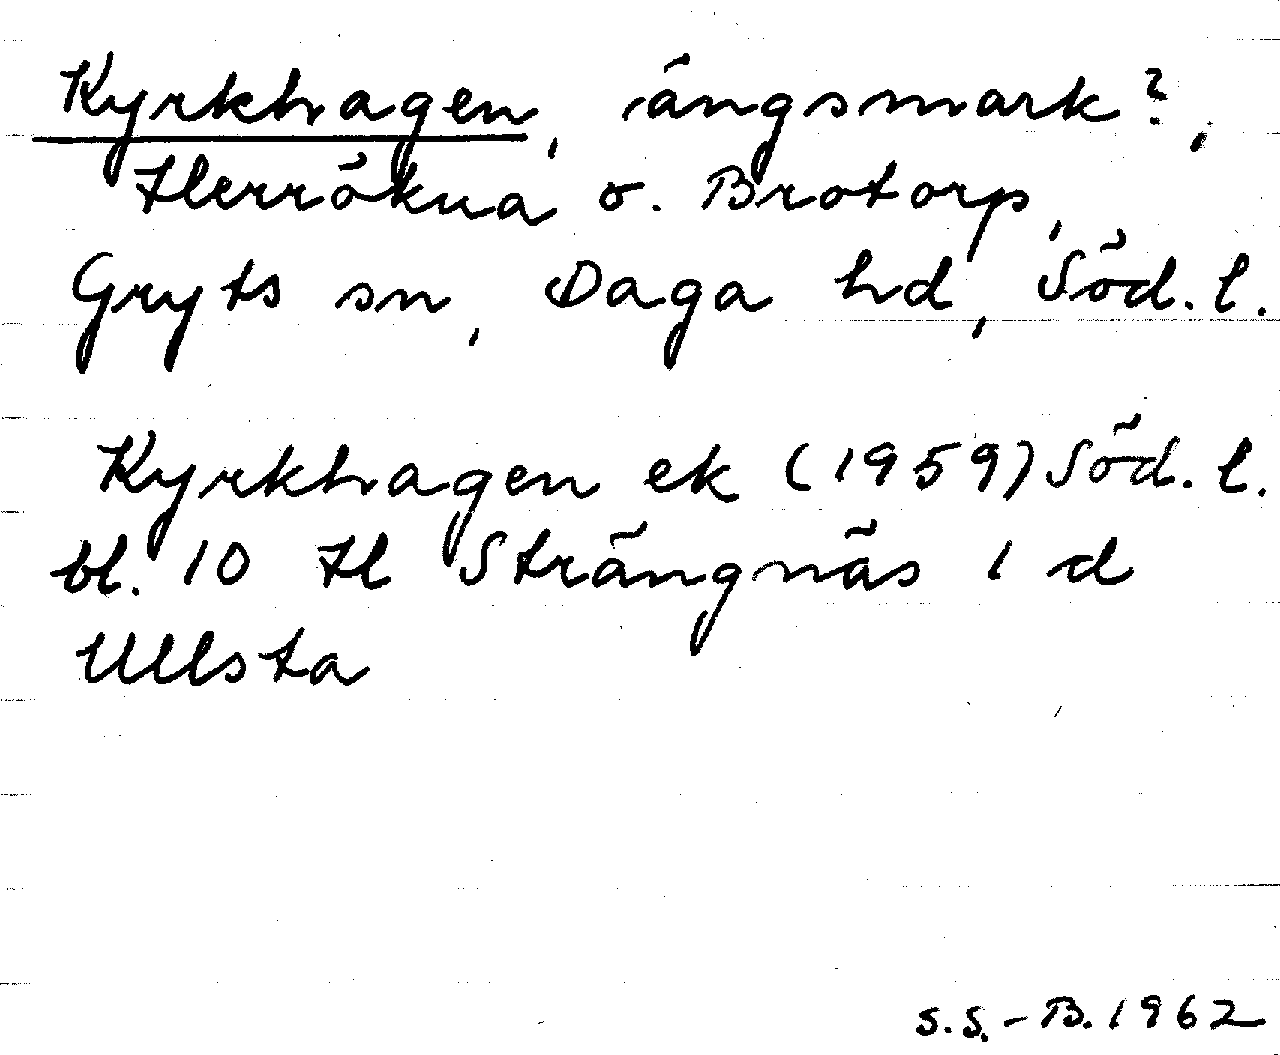 Kyrkhagen, ängsmark?,
Herrökna o. Brotorp,
Gryts sn, Daga hd, Söd. l.
Kyrkhagen ek (1959) Söd. l.
bl. 10 H Strängnäs 1 d
Ullsta
S.S.-B. 1962